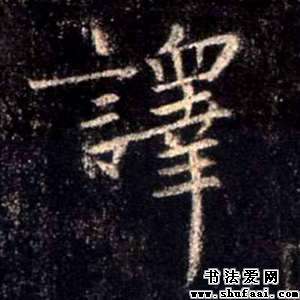 譯
书法爱网
www.shufaai.com